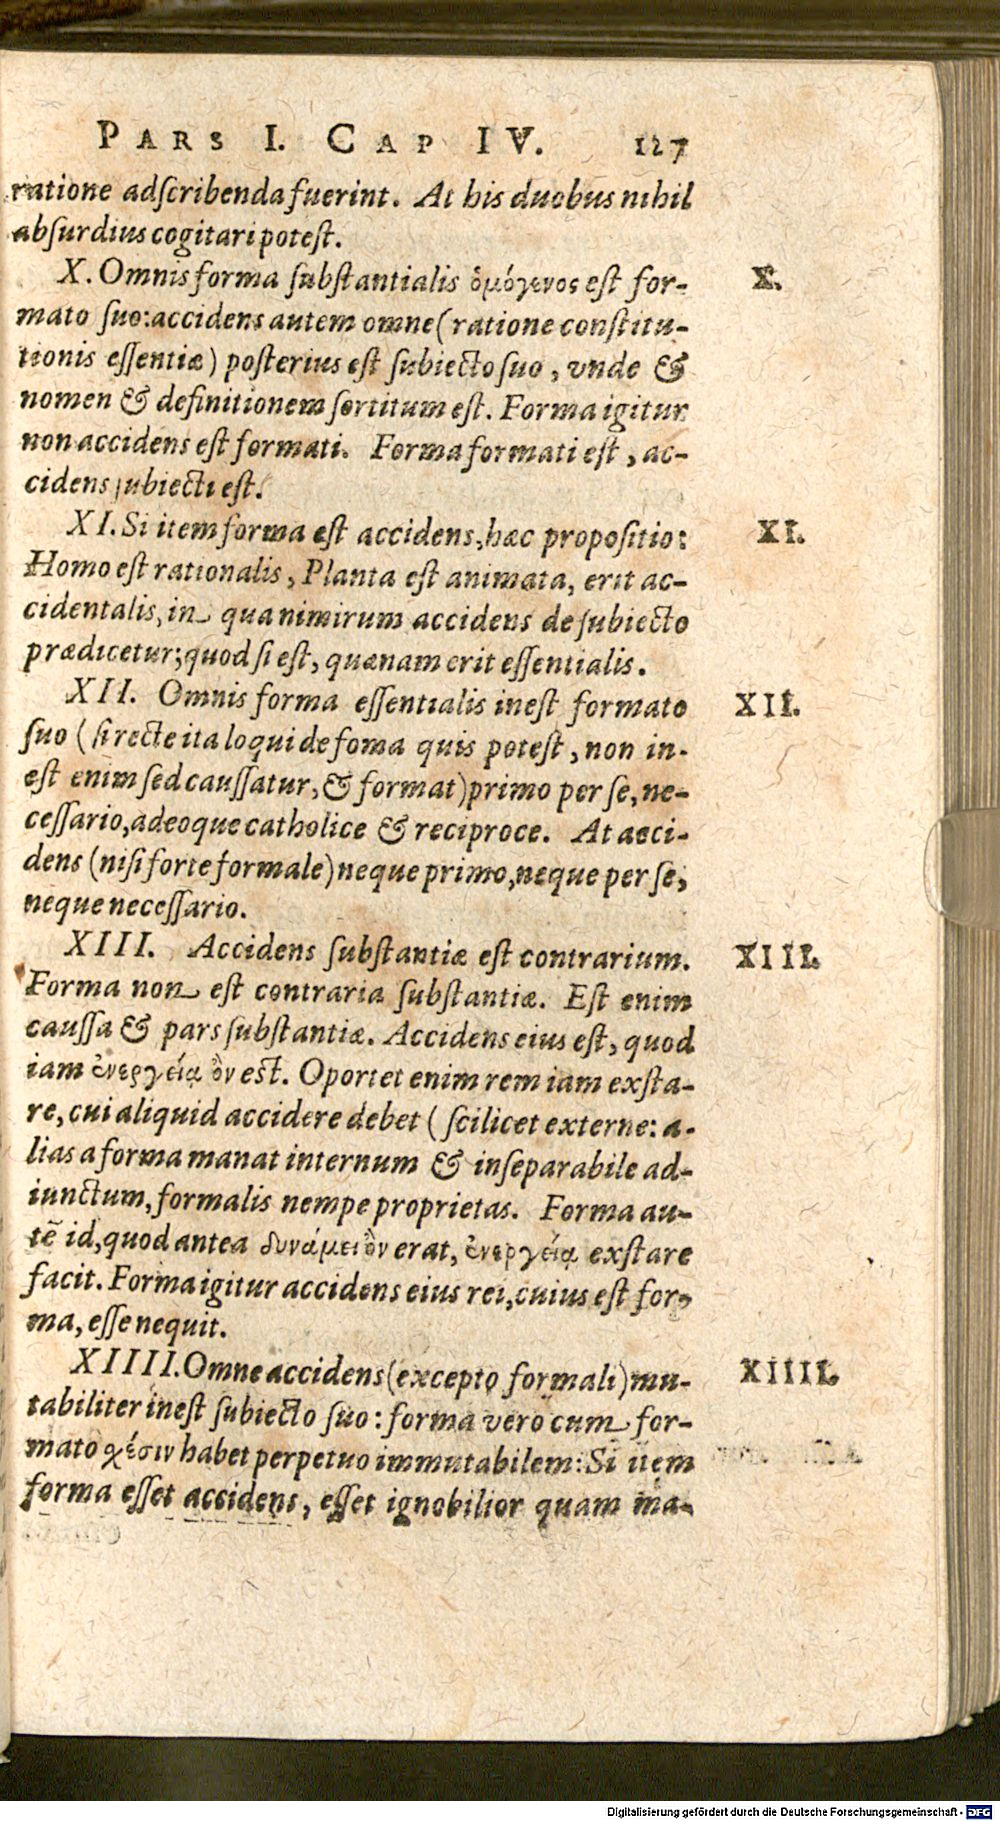 PARS I. CAP IV. 127
ratione adscribenda fuerint. At his duobus nihil
absurdius cogitari potest.
X. Omnis forma substantialis ὁμόγενος est for- X.
mato suo: accidens autem omne (ratione constitu-
tionis essentiæ) posterius est subiecto suo, vnde &
nomen & definitionem sortitum est. Forma igitur
non accidens est formati. Forma formati est, ac-
cidens subiecti est.
XI. Si item forma est accidens, hæc propositio: XI.
Homo est rationalis, Planta est animata, erit ac-
cidentalis, in qua nimirum accidens de subiecto
prædicetur; quod si est, quænam erit essentialis.
XII. Omnis forma essentialis inest formato XII.
suo (si recte ita loqui de foma quis potest, non in-
est enim sed caussatur, & format) primo per se, ne-
cessario, adeoque catholice & reciproce. At acci-
dens (nisi forte formale) neque primo, neque per se,
neque necessario.
XIII. Accidens substantiæ est contrarium. XIII.
Forma non est contraria substantiæ. Est enim
caussa & pars substantiæ. Accidens eius est, quod
iam ἐνεργείᾳ ὂν est. Oportet enim rem iam exsta-
re, cui aliquid accidere debet (scilicet externe: a-
lias a forma manat internum & inseparabile ad-
iunctum, formalis nempe proprietas. Forma au-
tē id, quod antea δυνάμει ὂν erat, ἐνεργείᾳ exstare
facit. Forma igitur accidens eius rei, cuius est for-
ma, esse nequit.
XIIII. Omne accidens (excepto formali) mu- XIIII.
tabiliter inest subiecto suo: forma vero cum for-
mato χέσιν habet perpetuo immutabilem: Si item
forma esset accidens, esset ignobilior quam ma-
Digitalisierung gefördert durch die Deutsche Forschungsgemeinschaft - DFG